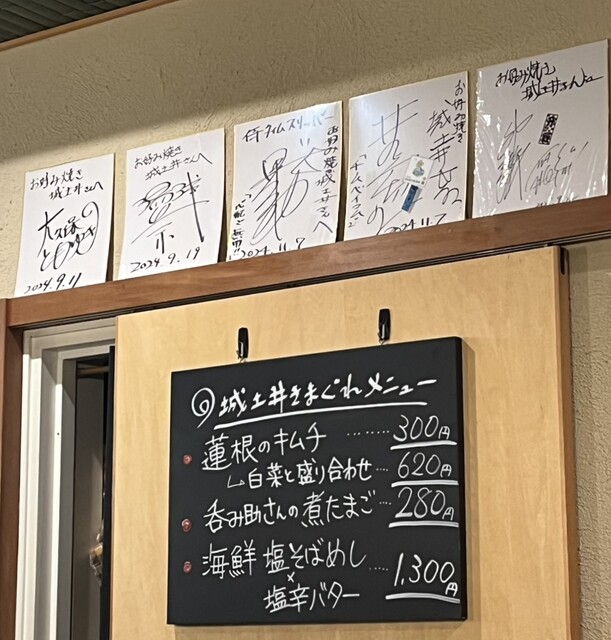 お好み焼き
城土井さんへ
大久保
ともゆき
2024.9.11
お好み焼き
城土井さんへ
2024.9.19
侍タイムスリーパー
お好み焼き城土井さんへ
"心配ご無用!!"
2024.11.9
お好み焼き
城土井さん
2024.11.7
お好み焼き
城土井さんへ
城土井きまぐれメニュー
蓮根のキムチ ………300円
白菜と盛り合わせ…620円
呑み助さんの煮たまご…280円
海鮮 塩そばめし ……1,300円
×
塩辛バター